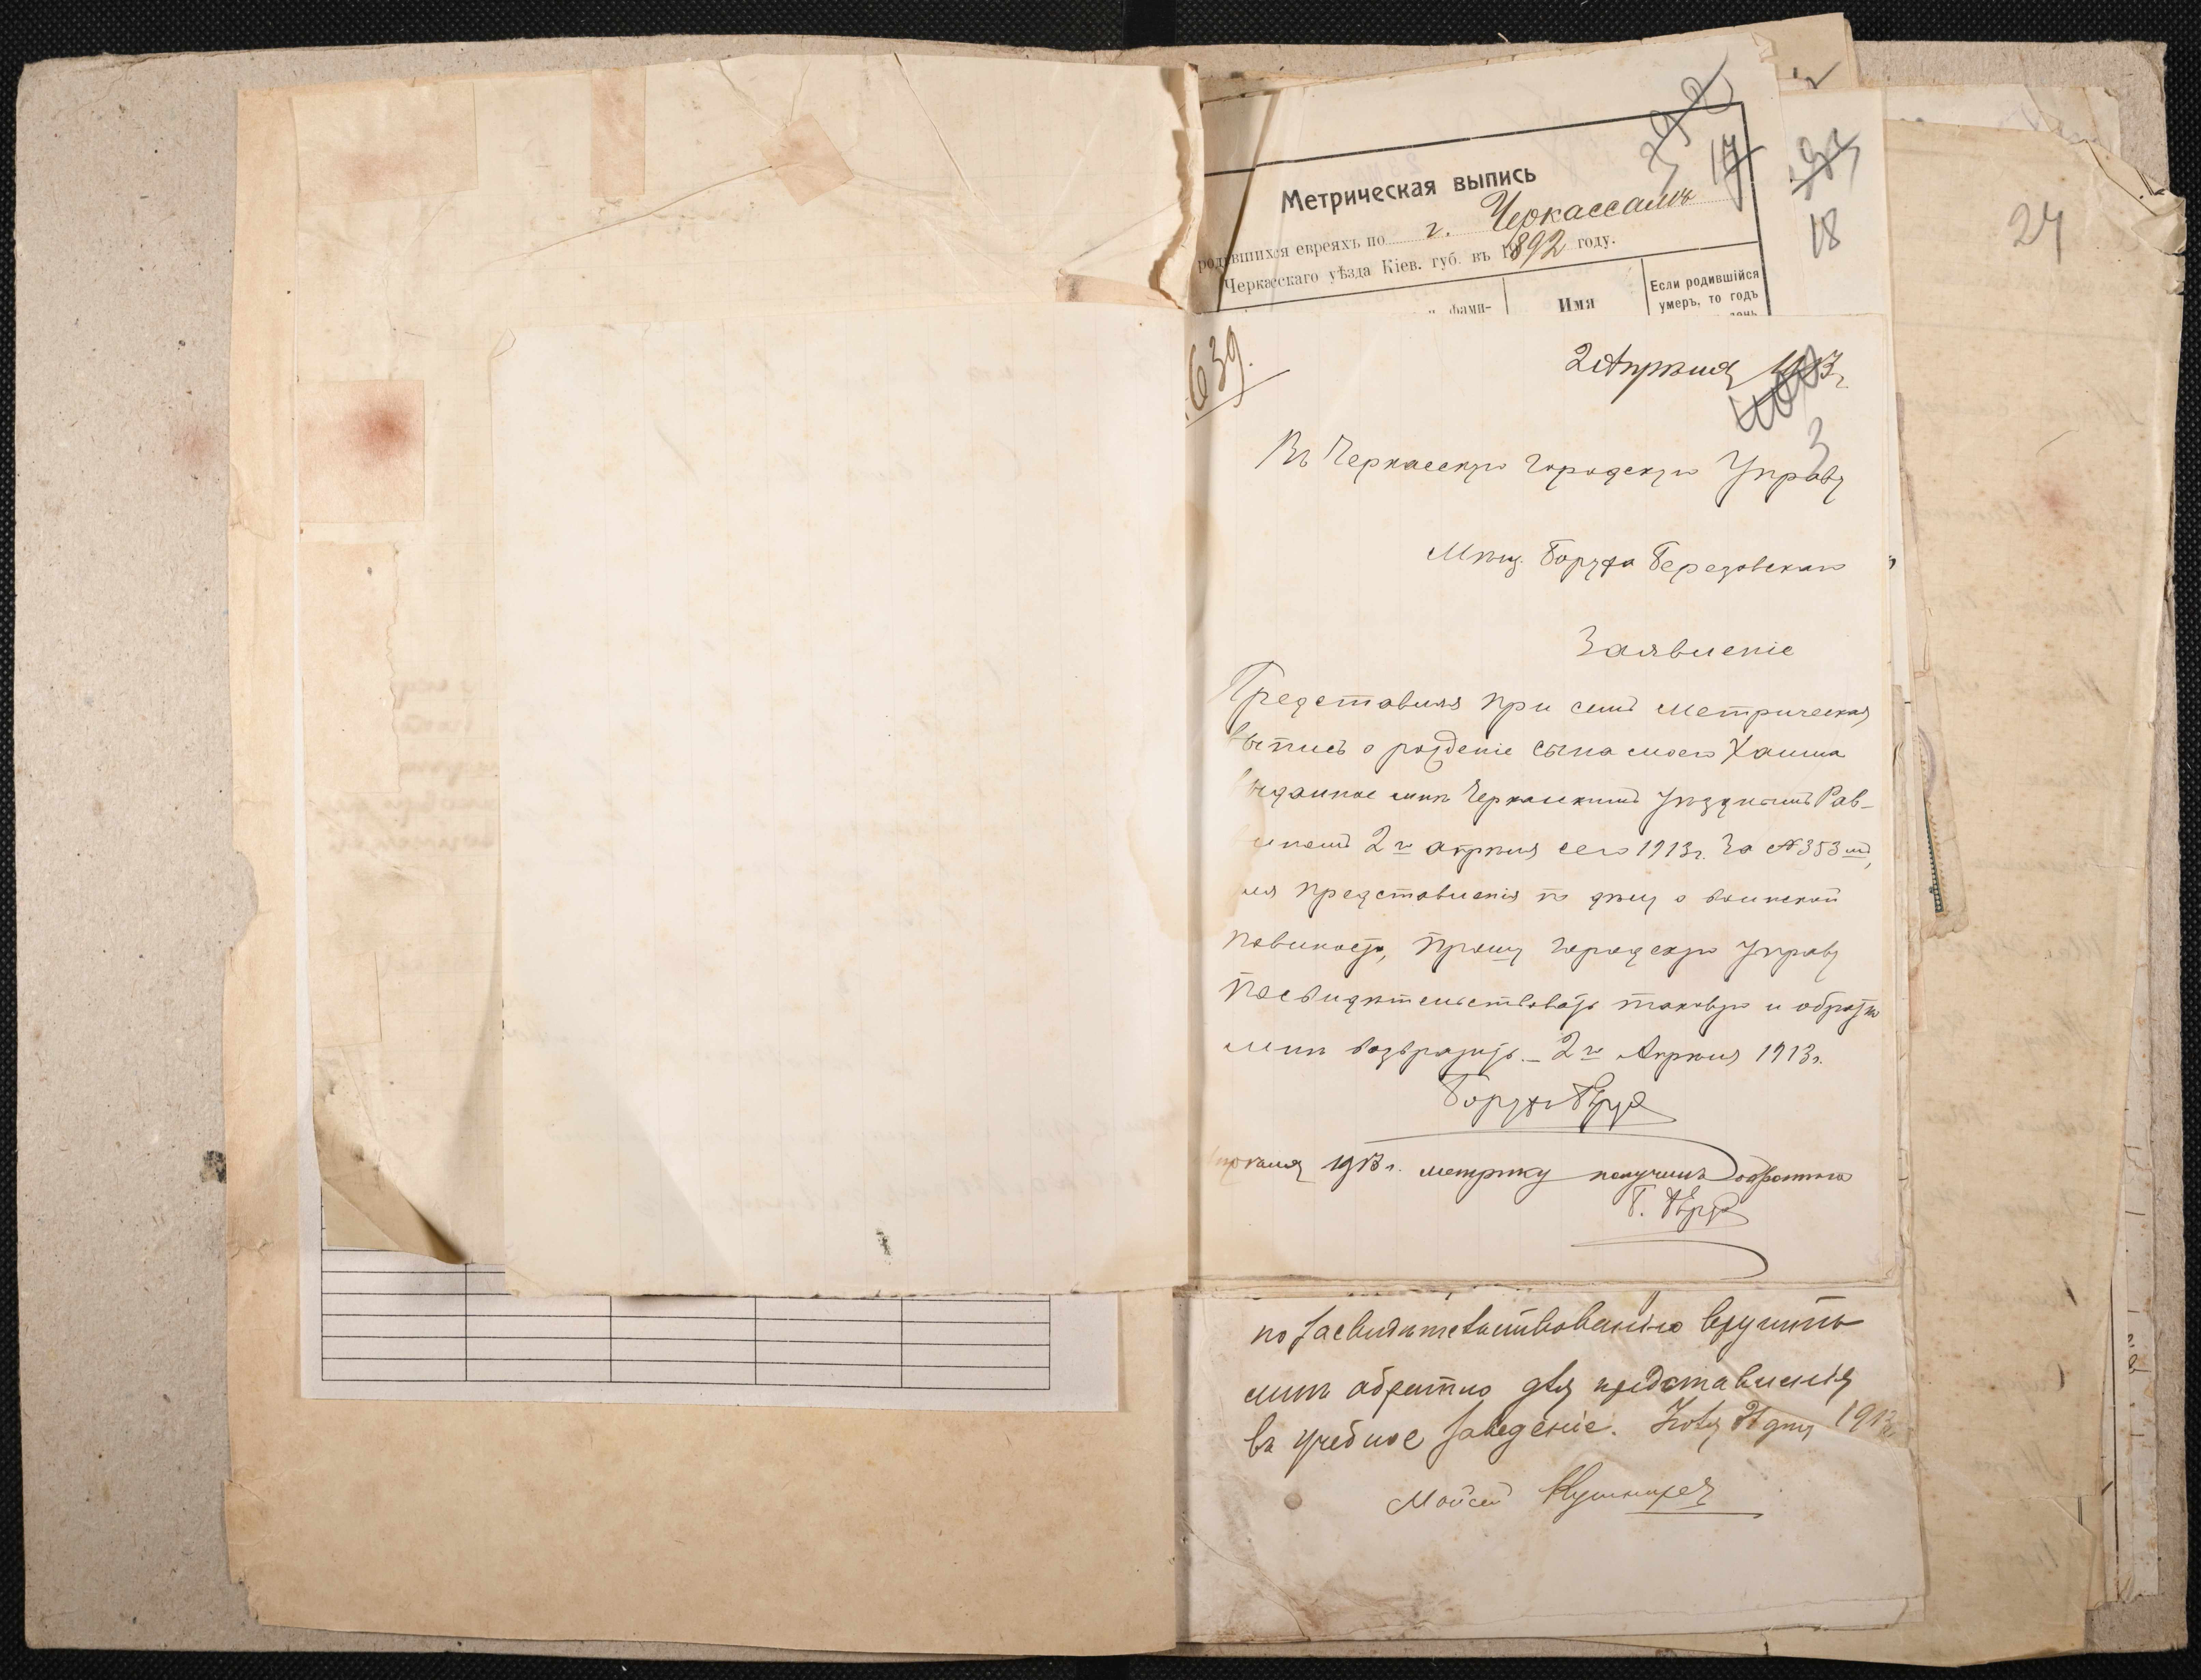 Метрическая выпись
родившихся евреяхъ по г. Черкассамъ
Черкасскаго уѣзда Кіев. губ. въ 1892 году.
фами-
Имя
Если родившійся
умеръ, то годъ
17
18
24
639.
2 Апрѣля 1913 г.
3
Въ Черкасскую Городскую Управу
Мѣщ. Боруха Березовскаго
Заявленіе
Представляя при семъ метрическая
выпись о рожденіе сына моего Хаима
выданное мнѣ Черкасскимъ Уѣзднымъ Рав-
иномъ 2го апрѣля сего 1913 г. За №353мъ,
для представленія по дѣлу о воинской
повиность, прошу городскую Управу
Посвидѣтельствовать таковую и обратно
мнѣ возвратить. – 2го Апрѣля 1913 г.
Борухъ
Апрѣля 1913 г. метрику получилъ обратно
Б.
по засвидѣтельствованію вручить
мнѣ обратно для представленія
въ учебное заведеніе. дня 1913
Мойсей Кушниръ